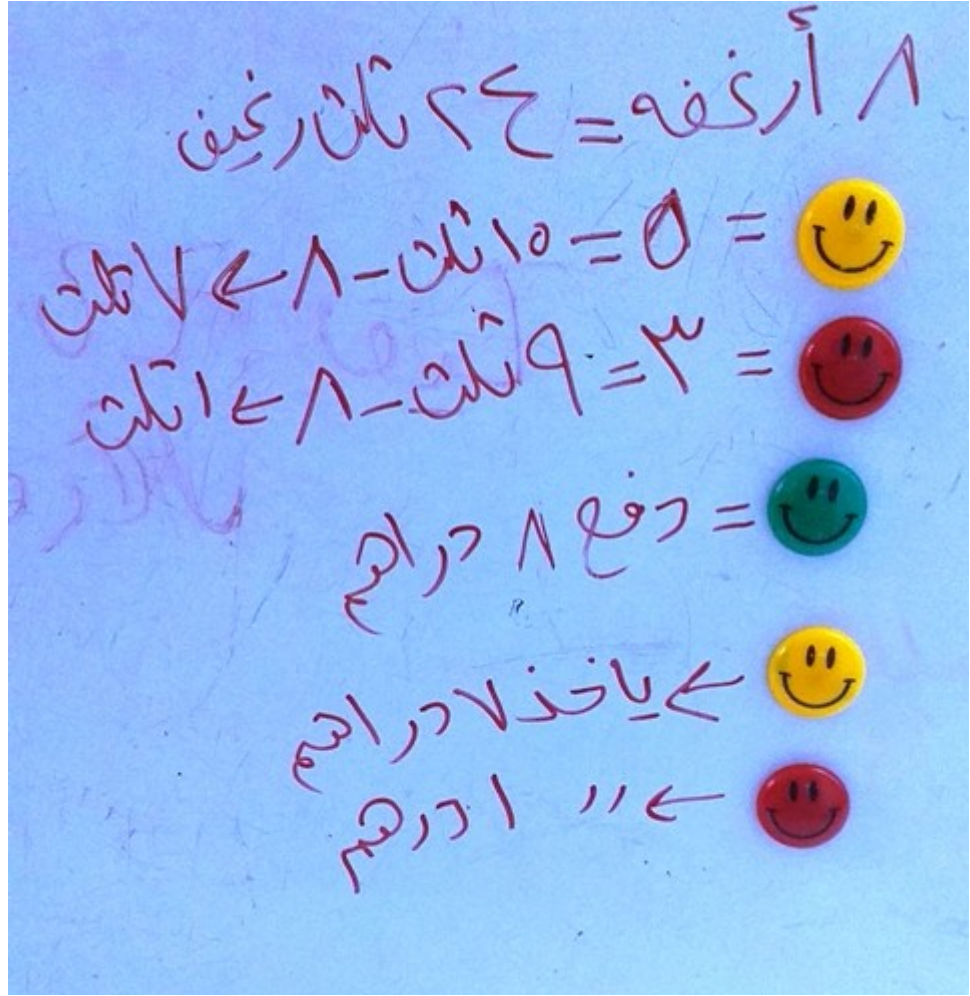 ٨ أرغفه = ٢٤ ثلث رغيف
= ٥ = ١٥ ثلث - ٨ ← ٧ ثلث
= ٣ = ٩ ثلث - ٨ ← ١ ثلث
= دفع ٨ دراهم
← ياخذ ٧ دراهم
← // ١ درهم